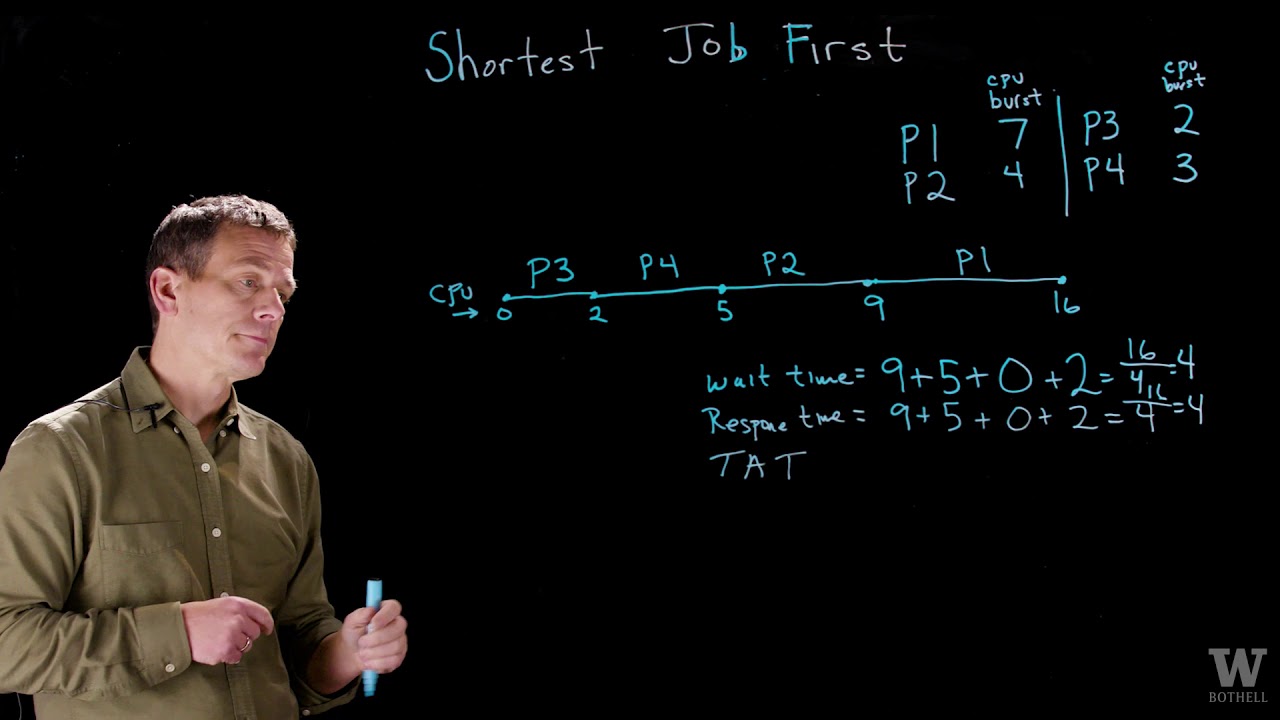 Shortest Job First
cpu burst cpu burst
P1 7 P3 2
P2 4 P4 3
P3 P4 P2 P1
CPU →
0 2 5 9 16
wait time = 9+5+0+2 = 16/4 = 4
Respone time = 9+5+0+2 = 16/4 = 4
TAT
W
BOTHELL